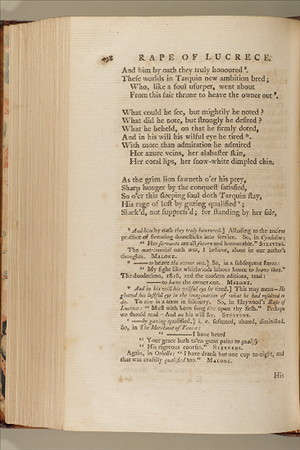 498 RAPE OF LUCRECE.
And him by oath they truly honoured ⁸.
These worlds in Tarquin new ambition bred;
Who, like a foul usurper, went about
From this fair throne to heave the owner out ⁹.
What could he see, but mightily he noted?
What did he note, but strongly he desired?
What he beheld, on that he firmly doted,
And in his will his wilful eye he tired ⁸.
With more than admiration he admired
Her azure veins, her alabaster skin,
Her coral lips, her snow-white dimpled chin.
As the grim lion fawneth o'er his prey,
Sharp hunger by the conquest satisfied,
So o'er this sleeping soul doth Tarquin stay,
His rage of lust by gazing qualified ⁹;
Slack'd, not suppress'd; for standing by her side,
⁸ And him by oath they truly honoured.] Alluding to the ancient
practice of swearing domesticks into service. So, in Cymbeline:
" Her servants are all sworn and honourable." STEEVENS.
The matrimonial oath was, I believe, alone in our author's
thoughts. MALONE.
⁹ — to heave the owner out.] So, in a subsequent stanza:
" My sighs like whirlwinds labour hence to heave thee."
The duodecimo, 1616, and the modern editions, read:
— to burn the owner out. MALONE.
⁸ And in his will his wilful eye he tired.] This may mean—He
glutted his lustful eye in the imagination of what he had resolved to
do. To tire is a term in falconry. So, in Heywood's Rape of
Lucrece: " Must with keen fang tire upon thy flesh." Perhaps
we should read—And on his will &c. STEEVENS.
⁹ —by gazing qualified;] i. e. softened, abated, diminished.
So, in The Merchant of Venice:
" — I have heard
" Your grace hath ta'en great pains to qualify
" His rigorous courses." STEEVENS.
Again, in Othello: " I have drank but one cup to-night, and
that was craftily qualified too." MALONE.
His